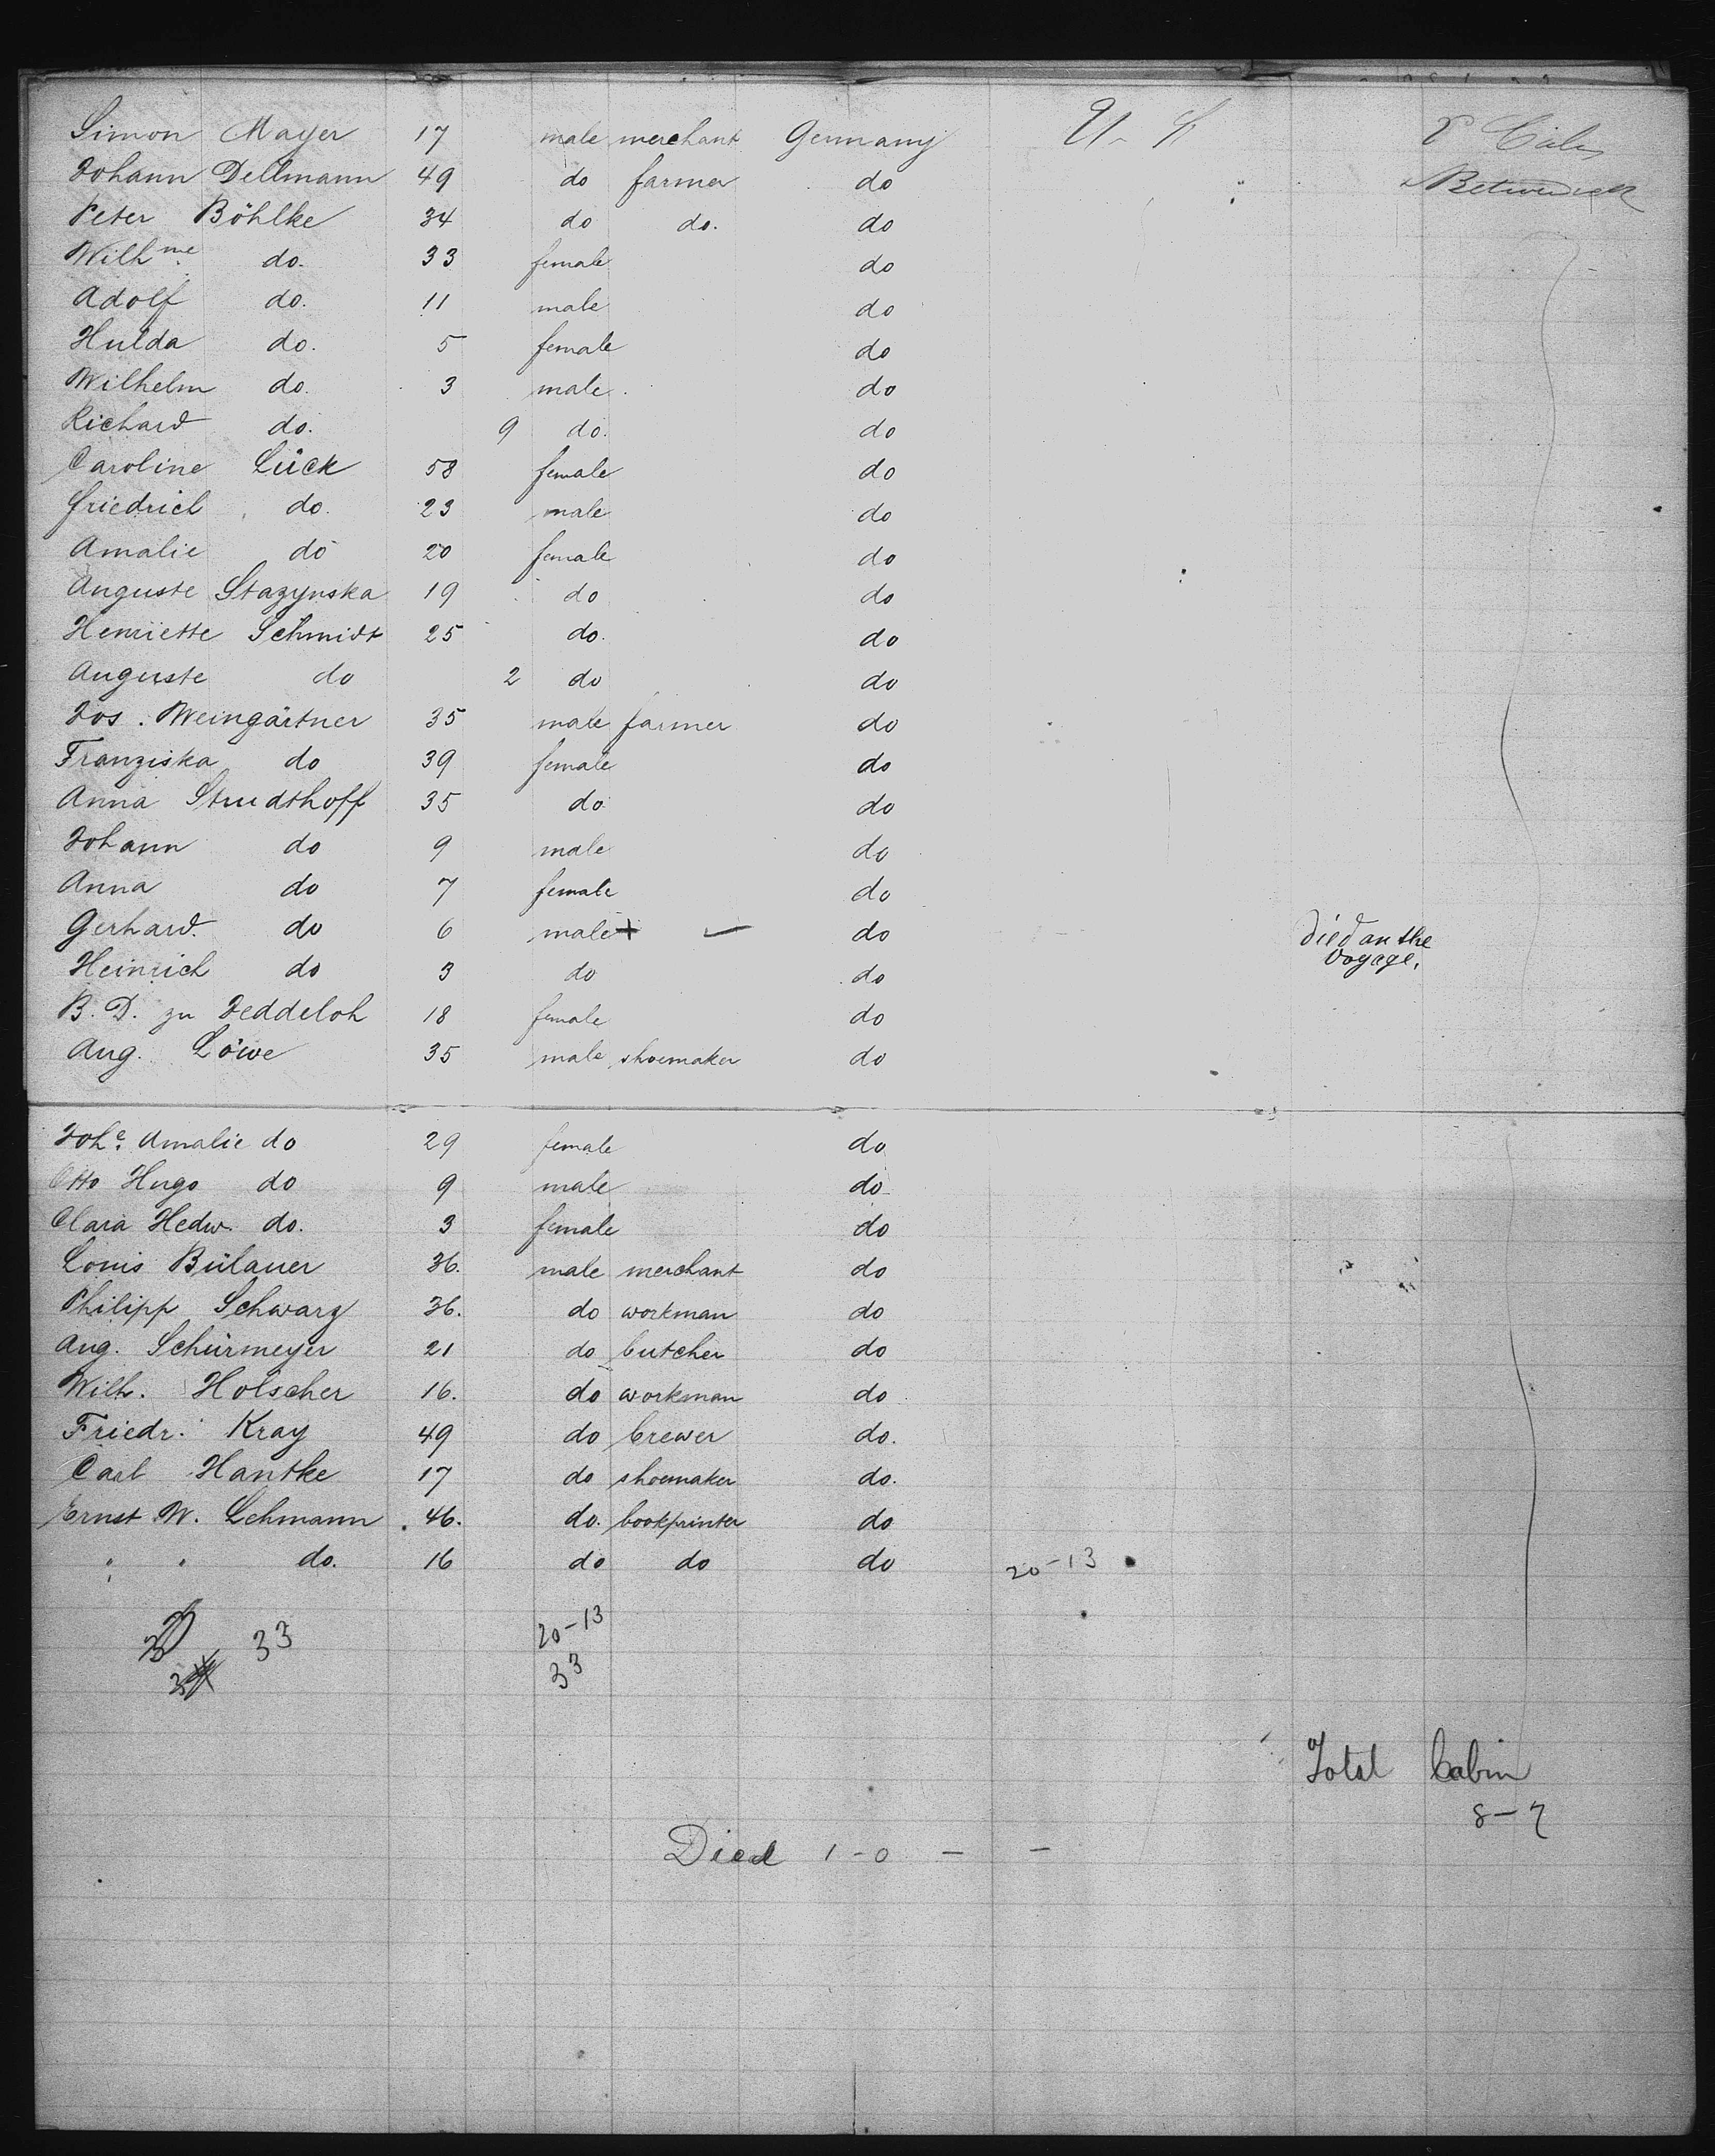 Simon Mayer 17 male merchant Germany U. S.
Johann Dellmann 49 do farmer do Betw deck
Peter Böhlke 34 do do. do
Wilh me do. 33 female do
Adolf do. 11 male do
Hulda do. 5 female do
Wilhelm do. 3 male do
Richard do. 9 do. do
Caroline Lück 58 female do
Friedrich do. 23 male do
Amalie do 20 female do
Auguste Stazynska 19 do do
Henriette Schmidt 25 do. do
Auguste do 2 do do
Jos. Weingärtner 35 male farmer do
Franziska do 39 female do
Anna Strudthoff 35 do do
Johann do 9 male do
Anna do 7 female do
Gerhard do 6 male + ✓ do Died on the
voyage.
Heinrich do 3 do do
B. D. zu Jeddeloh 18 female do
Aug. Löwe 35 male shoemaker do
Joh e. Amalie do 29 female do
Otto Hugo do 9 male do
Clara Hedw. do. 3 female do
Louis Bülauer 36. male merchant do
Philipp Schwarz 36. do workman do
Aug. Schürmeyer 21 do butcher do
Wilh. Holscher 16. do workman do
Friedr. Kray 49 do brewer do.
Carl Hantke 17 do shoemaker do.
Ernst W. Lehmann 46. do. bookprinter do
" " do. 16 do do do 20-13
33 20-13
33
Total Cabin
8-7
Died 1-0 - -